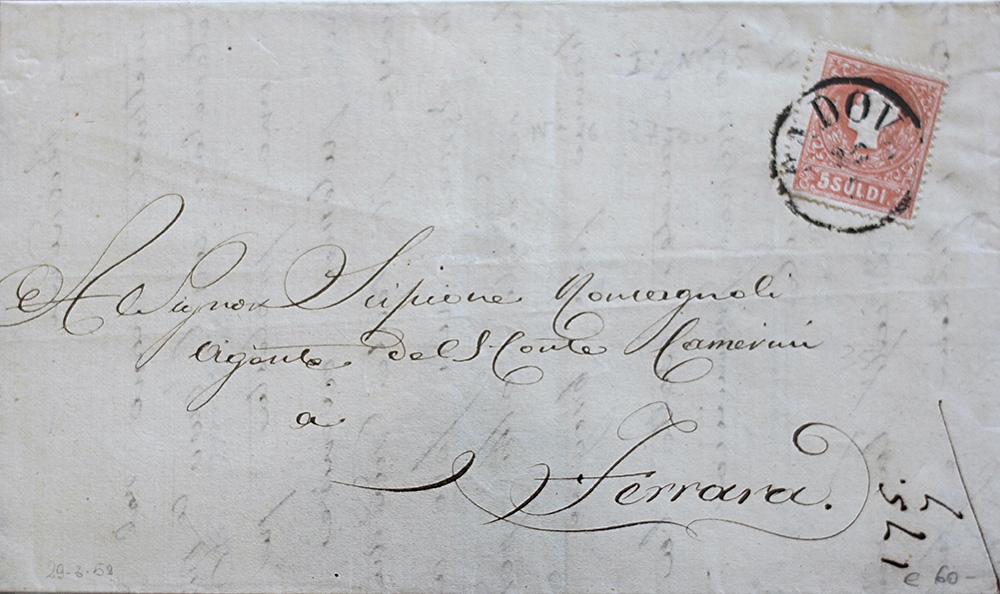 PADOV
5 SOLDI.
Al Signor Scipione Romagnoli
Agente del S. Conte Camerini
a
Ferrara.
29-3-59
e 60-